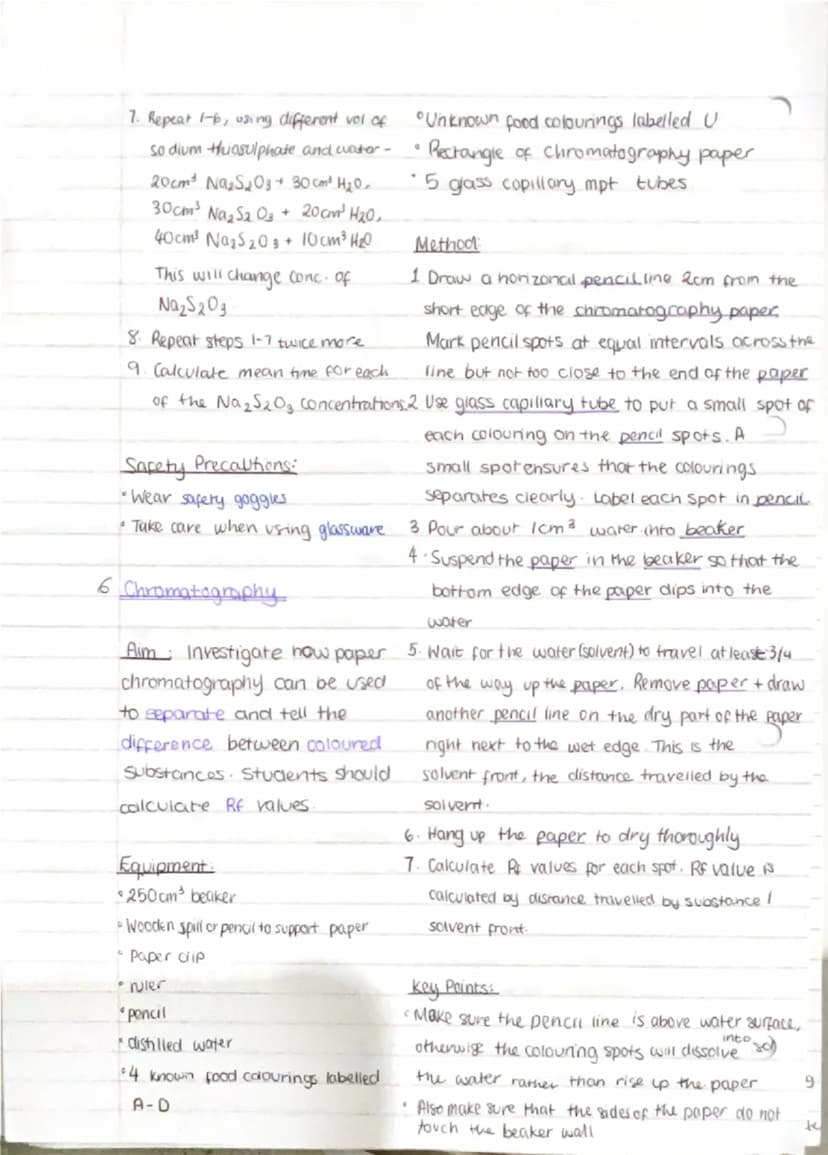 7. Repeat 1-6, using different vol of
sodium thuosulphate and water -
20cm³ Na₂S₂O₃ + 30cm³ H₂O,
30cm³ Na₂S₂O₃ + 20cm³ H₂O,
40cm³ Na₂S₂O₃ + 10cm³ H₂O
This will change conc. of
Na₂S₂O₃
8. Repeat steps 1-7 twice more
9. Calculate mean time for each
of the Na₂S₂O₃ concentrations.
Safety Precautions:
• Wear safety goggles
• Take care when using glassware
6 Chromatography
Aim: Investigate how paper
chromatography can be used
to separate and tell the
difference between coloured
substances. Students should
calculate Rf values.
Equipment:
• 250cm³ beaker
• Wooden spill or pencil to support paper
• Paper clip
• ruler
• pencil
• distilled water
• 4 known food colourings labelled
A-D
• Unknown food colourings labelled U
• Rectangle of chromatography paper
• 5 glass capillary mpt tubes
Method:
1 Draw a horizonal pencil line 2cm from the
short edge of the chromatography paper.
Mark pencil spots at equal intervals across the
line but not too close to the end of the paper
2 Use glass capillary tube to put a small spot of
each colouring on the pencil spots. A
small spot ensures that the colourings
separates clearly. Label each spot in pencil
3 Pour about 1cm³ water into beaker
4. Suspend the paper in the beaker so that the
bottom edge of the paper dips into the
water
5. Wait for the water (solvent) to travel at least 3/4
of the way up the paper. Remove paper + draw
another pencil line on the dry part of the paper
right next to the wet edge. This is the
solvent front, the distance travelled by the
solvent.
6. Hang up the paper to dry thoroughly
7. Calculate Rf values for each spot. Rf value is
calculated by distance travelled by substance /
solvent front.
Key Points:
• Make sure the pencil line is above water surface,
otherwise the colouring spots will dissolve into
the water rather than rise up the paper
• Also make sure that the sides of the paper do not
touch the beaker wall
9